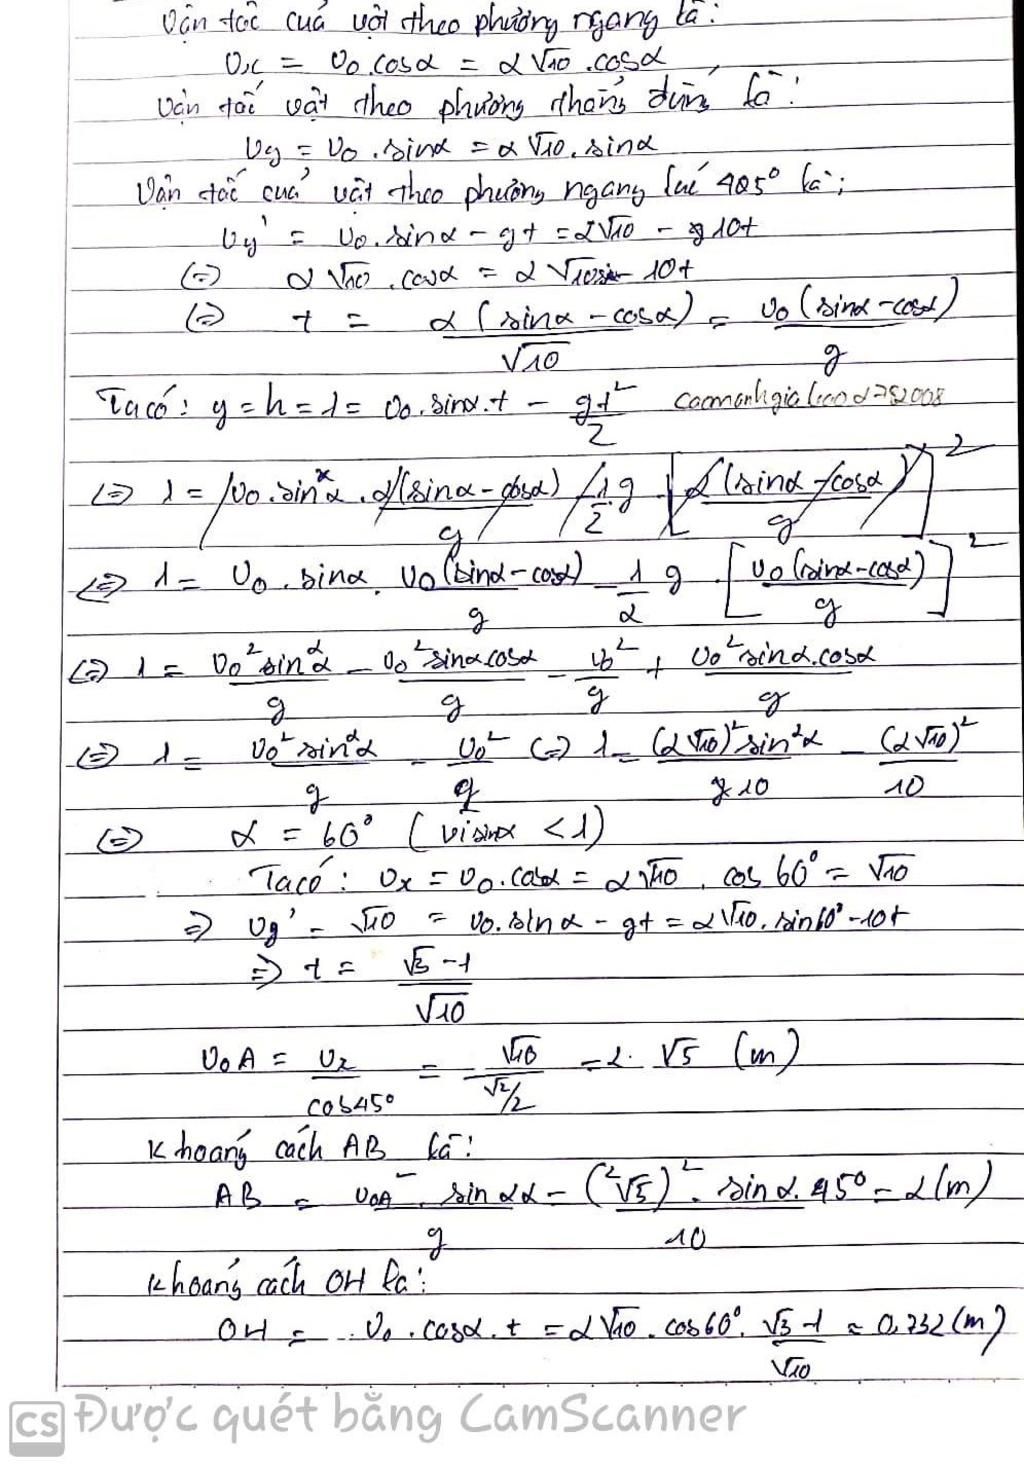 Vận tốc của vật theo phương ngang là:
Vx = V0.cosα = 2√10.cosα
Vận tốc vật theo phương thẳng đứng là:
Vy = V0.sinα = 2√10.sinα
Vận tốc của vật theo phương ngang lúc 45° là:
Vy' = V0.sinα - gt = 2√10 - 10t
(=) 2√10.cosα = 2√10sin - 10t
(=) t = 2(sinα - cosα)/√10 = V0(sinα - cosα)/g
Ta có: y = h = 1 = V0.sinα.t - gt²/2
(=) 1 = V0.sinα.2(sinα - cosα)/g 1/2 g [2(sinα - cosα)/g]²
(=) 1 = V0.sinα.V0(sinα - cosα)/g - 1/2 g.[V0(sinα - cosα)/g]²
(=) 1 = V0²sin²α/g - V0²sinαcosα/g - V0²/g + V0²sinα.cosα/g
(=) 1 = V0²sin²α/g - V0²/g (=) 1 = (2√10)²sin²α/10 - (2√10)²/10
(=) α = 60° (vì sinα < 1)
Ta có: Vx = V0.cosα = 2√10.cos60° = √10
=> Vy' = √10 = V0.sinα - gt = 2√10.sin60° - 10t
=> t = √3 - 1/√10
V0A = Vx/cos45° = √10/√2/2 = 2.√5 (m)
Khoảng cách AB là:
AB = V0A².sin2α/g = (2√5)².sin2.45°/10 = 2(m)
Khoảng cách OH là:
OH = V0.cosα.t = 2√10.cos60°.√3 - 1/√10 ≈ 0,732(m)
CS Được quét bằng CamScanner